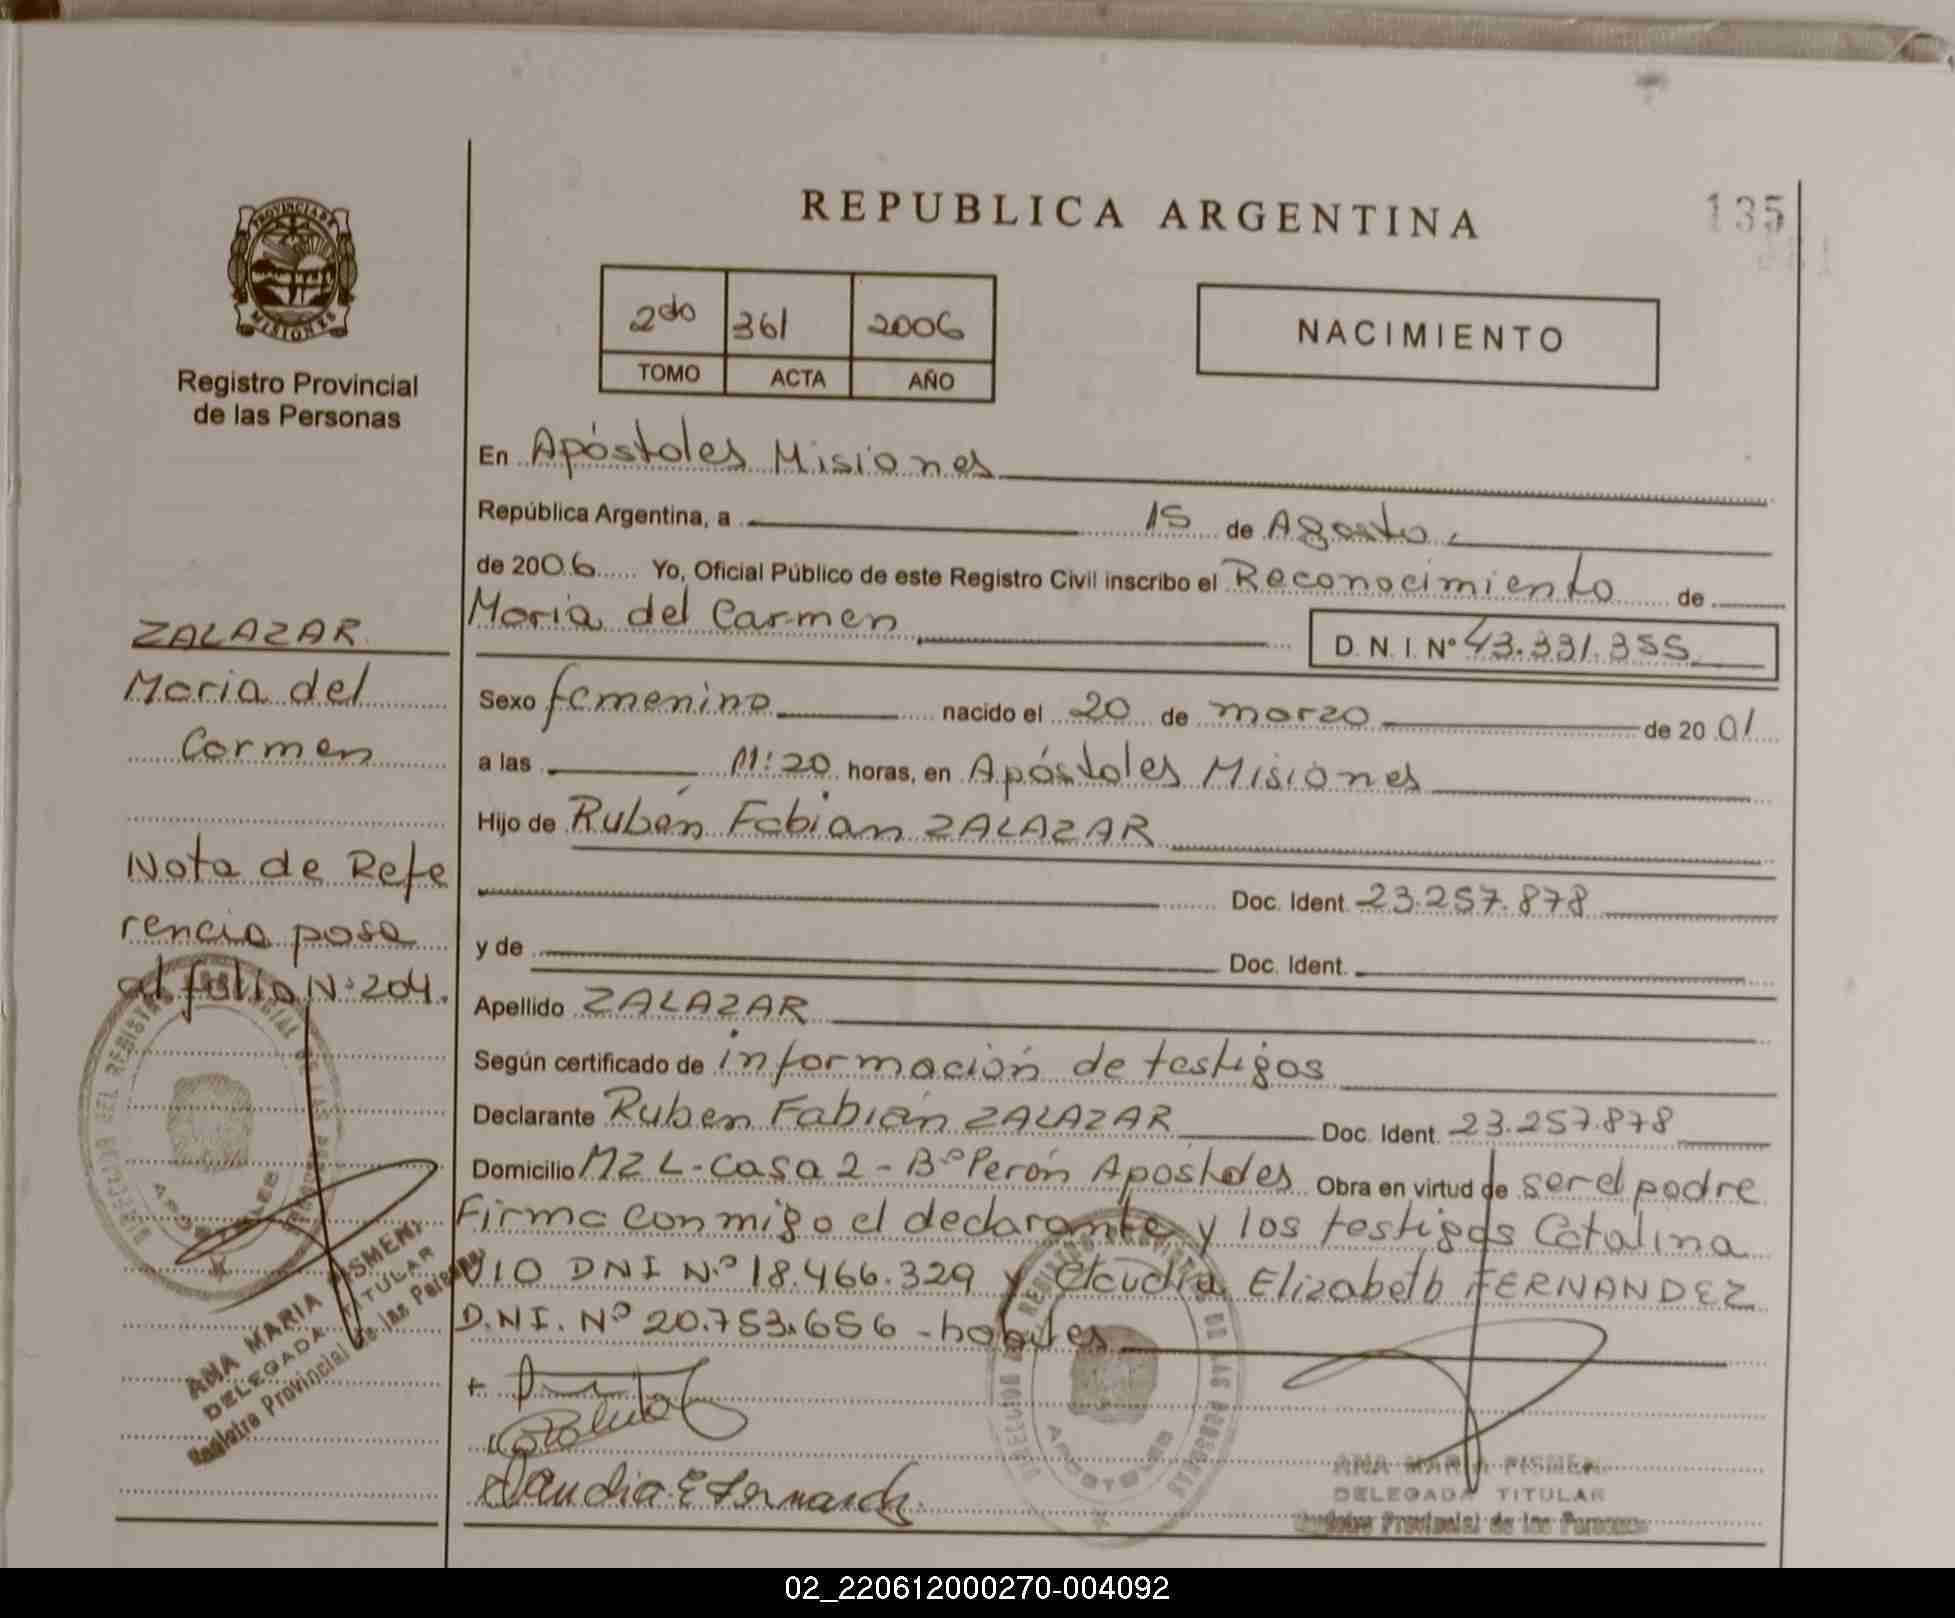 REPUBLICA ARGENTINA
135
PROVINCIA DE
MISIONES
Registro Provincial
de las Personas
2do 361 2006
TOMO ACTA AÑO
NACIMIENTO
En Apóstoles Misiones
República Argentina, a 15 de Agosto
de 2006 Yo, Oficial Público de este Registro Civil inscribo el Reconocimiento de
Maria del Carmen
D. N. I. Nº 43.331.355
Sexo femenino nacido el 20 de marzo de 2001
a las 11:20 horas, en Apóstoles Misiones
Hijo de Rubén Fabián ZALAZAR
Doc. Ident. 23.257.878
y de Doc. Ident.
Apellido ZALAZAR
Según certificado de información de testigos
Declarante Ruben Fabián ZALAZAR Doc. Ident. 23.257.878
Domicilio MZ L-Casa 2-Bº Perón Apóstoles Obra en virtud de ser el padre
Firma conmigo el declarante y los testigos Catalina
VIO DNI N.º 18.466.329 y Claudia Elizabeth FERNANDEZ
D.N.I. Nº 20.753.656 - habiles
Claudia E Fernandez
ANA MARIA PISMENI
DELEGADA TITULAR
Registro Provincial de las Personas
ZALAZAR
Maria del
Carmen
Nota de Refe
rencia pasa
al folio Nº 204.
DIRECCION DEL REGISTRO PROVINCIAL DE LAS PERSONAS
APOSTOLES
ANA MARIA PISMENI
DELEGADA TITULAR
Registro Provincial de las Personas
DIRECCION DEL REGISTRO PROVINCIAL DE LAS PERSONAS
APOSTOLES
02_220612000270-004092